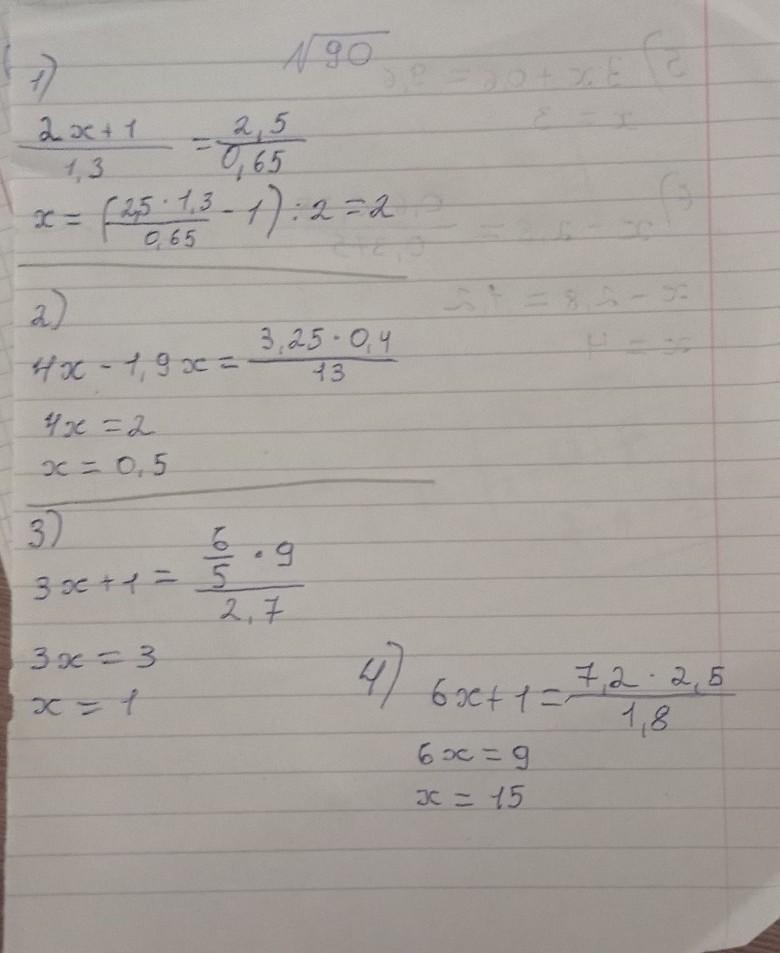 √90
1)
(2x+1)/1,3 = 2,5/0,65
x = (2,5 · 1,3/0,65 - 1) : 2 = 2
2)
4x - 1,9x = 3,25 · 0,4/13
4x = 2
x = 0,5
3)
3x + 1 = 6/5 · 9/2,7
3x = 3
x = 1
4) 6x + 1 = 7,2 · 2,5/1,8
6x = 9
x = 15